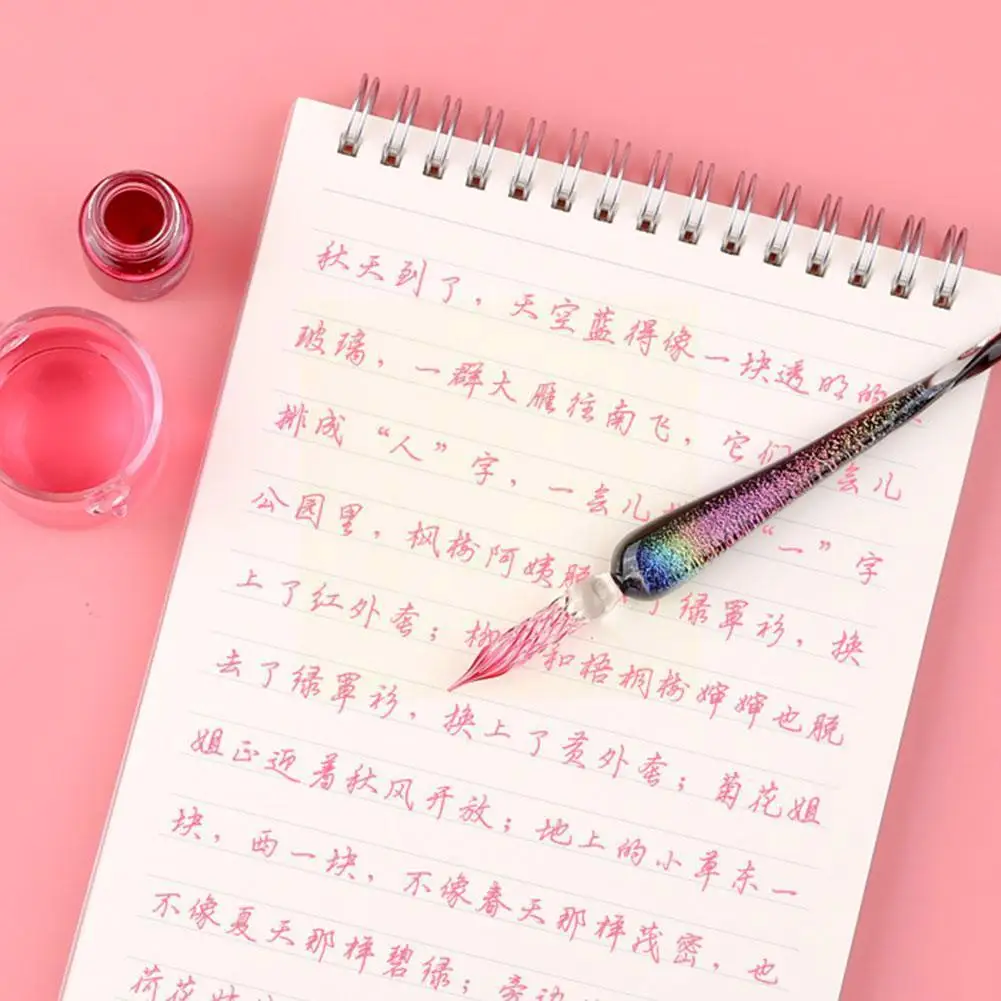 秋天到了，天空蓝得像一块透明的
玻璃，一群大雁往南飞，它们 会儿
排成“人”字，一会儿 “一”字
公园里，枫树阿姨脱 了绿罩衫，换
上了红外套；柳 和梧桐树婶婶也脱
去了绿罩衫，换上了黄外套；菊花姐
姐正迎着秋风开放；地上的小草东一
块，西一块，不像春天那样茂密，也
不像夏天那样碧绿；旁边
荷花姑